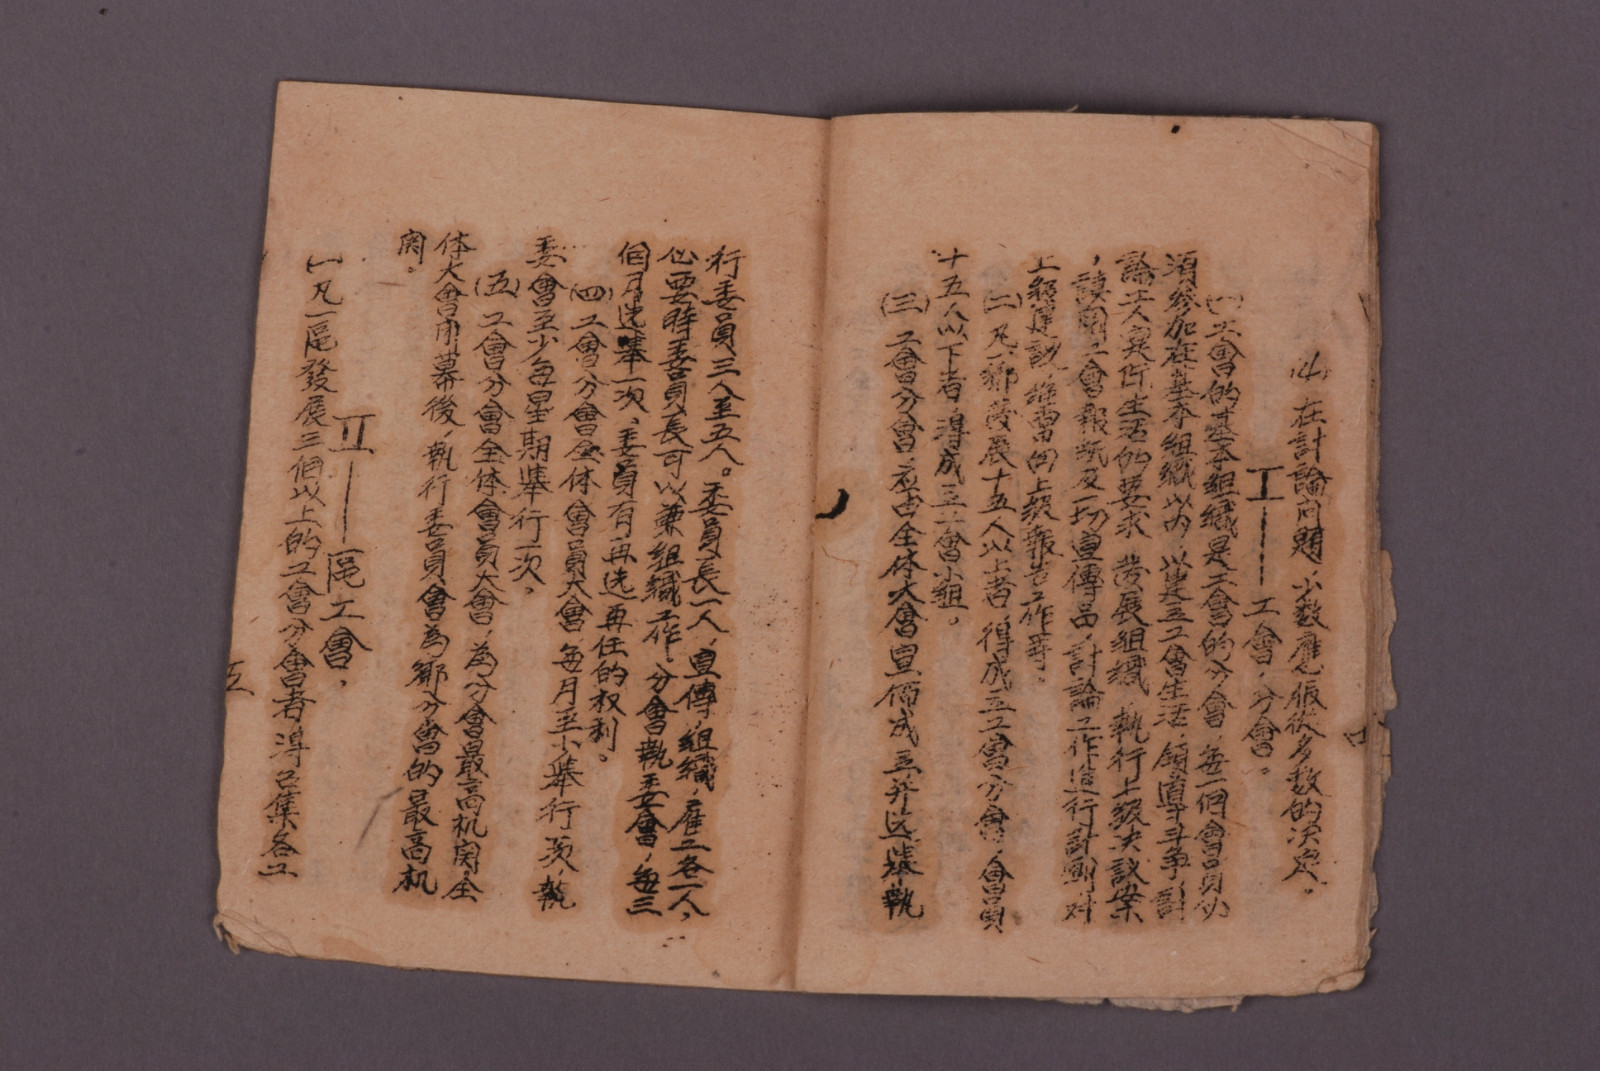 (4) 在討論问題 少数應服從多数的决定。
I——工會，分會。
(一)工會的基本組織是工會的分會，每一個會員必
須參加在基本組織以内 以建立工會生活，領導斗争，討
論工人實际生活的要求 發展組織 執行上級决議案
，讀閱工會報紙及一切宣傳品，討論工作進行計劃 对
上級建議，經常向上級報告工作等。
(二)凡一鄉發展十五人以上者 得成立工會分會，會員
十五人以下者 得成立工會小組。
(三)工會分會，应由全体大會宣佈成立并选舉執
行委員三人至五人。委員長一人，宣傳，組織，雇工各一人，
必要時委員長可以兼組織工作。分會執委會，每三
個月选舉一次、委員有再选 再任的权利。
(四)工會分會全体會員大會 每月至少舉行一次，執
委會至少每星期舉行一次，
(五)工會分會全体會員大會，為分會最高机関，全
体大會闭幕後，執行委員會為鄉分會的最高机
関。
II——區工會，
(一凡一區發展三個以上的工會分會者 得召集各工
五